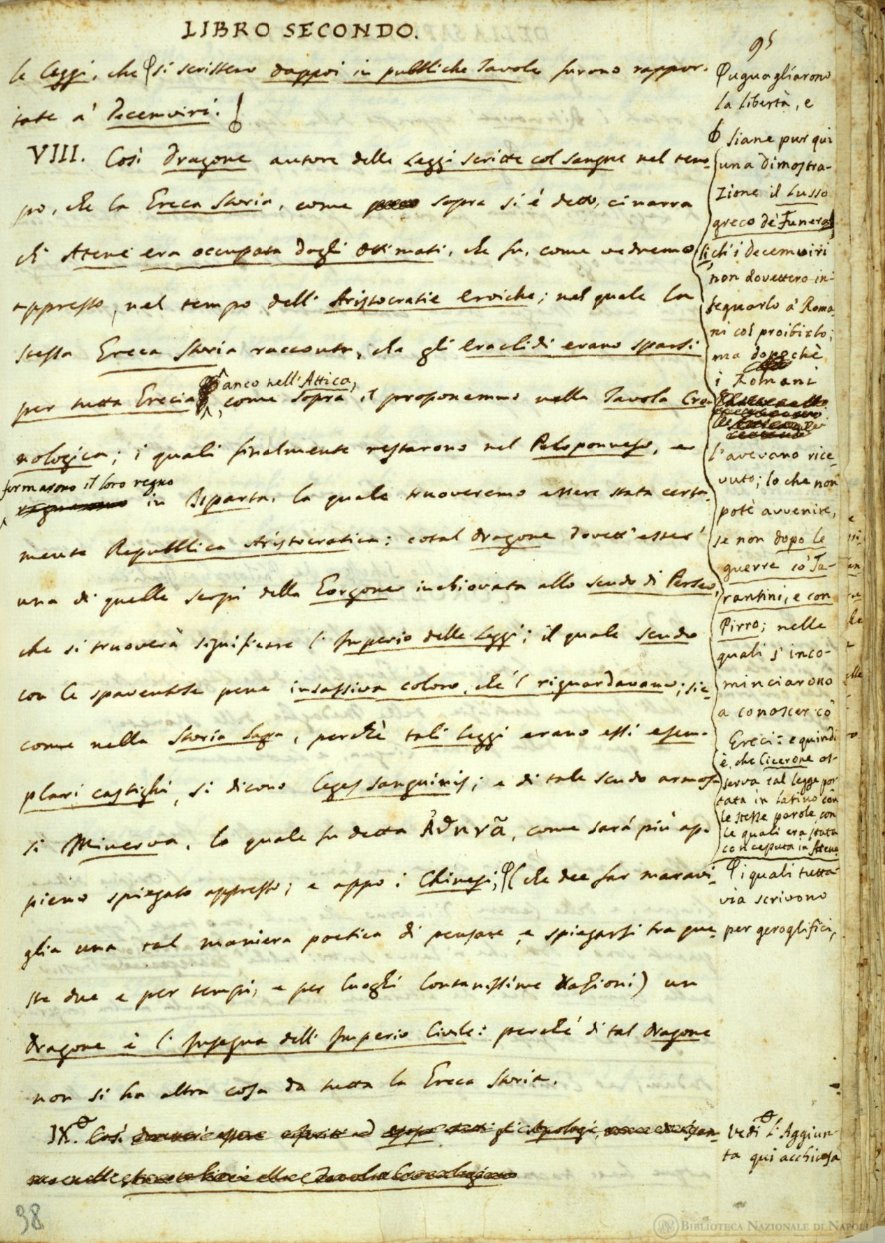 LIBRO SECONDO.
95
le Leggi, che si scrissero dappoi in pubbliche Tavole furono rappor-
tate a' Decemviri.
VIII. Così Dragone autore delle Leggi scritte col sangue nel tem-
po, che la Greca Storia, come sopra si è detto, ci narra
ch' Atene era occupata dagli Ottimati, che fu, come vedremo
appresso, nel tempo dell' Aristocratie Eroiche; nel quale la
stessa Greca Storia racconta, che gli Eraclidi erano sparsi
per tutta Grecia, anco nell'Attica,
come sopra il proponemmo nella Tavola Cro-
nologica; i quali finalmente restarono nel Peloponneso, e
fermarono il loro regno
in Isparta, la quale truoveremo essere stata certa-
mente Repubblica Aristocratica: cotal Dragone dovett' esser'
una di quelle serpi della Gorgone inchiovata allo scudo di Perseo,
che si truoverà significare l' Imperio delle Leggi; il quale scudo
con le spaventose pene insassiva coloro, che 'l riguardavano; sic-
come nella Storia Sagra, perchè tali Leggi erano essi esem-
plari castighi, si dicono leges sanguinis; e di tale scudo armossi
si Minerva, la quale fu detta Ἀθηνᾶ, come sarà più ap-
pieno spiegato appresso; e appo i Chinesi, (che dee far maravi-
glia una tal maniera poetica di pensare, e spiegarsi tra que-
ste due e per tempi, e per luoghi lontanissime Nazioni) un
Dragone è l' Insegna dell' Imperio Civile: perchè di tal Dragone
non si ha altra cosa da tutta la Greca Storia.
IX. Così
uguagliarono
la libertà, e
Siane pur qui
una dimostra-
zione il Lusso
greco de' Funerali
ch' i decemviri
non dovettero in-
segnarlo a' Roma-
ni col proibirlo;
ma dopochè
i Romani
l'avevano rice-
vuto; lo che non
potè avvenire,
se non dopo le
guerre co' Ta-
rantini, e con
Pirro; nelle
quali s' inco-
minciarono
a conoscer co'
Greci: e quindi
è, che Cicerone os-
serva tal legge por-
tata in latino con
le stesse parole, con
le quali era stata
conceputa in Atene
i quali tutta-
via scrivono
per geroglifici,
Vedi l'Aggiun-
ta qui acchiusa
38
BIBLIOTECA NAZIONALE DI NAPOLI